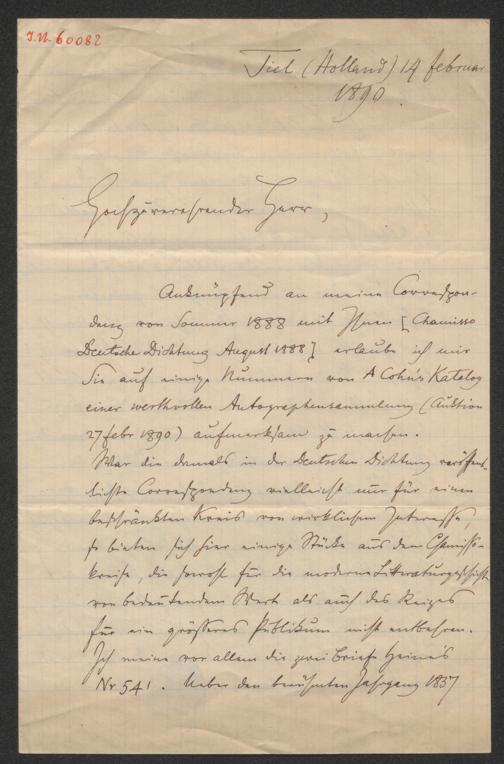 J.N. 60082
Tiel (Holland) 14 februar
1890.
Hochzuverehrender Herr,
Anknüpfend an meine Correspon-
denz von Sommer 1888 mit Ihnen [Chamisso
Deutsche Dichtung August 1888] erlaube ich mir
Sie auf einige Nummern von A Cohn's Katalog
einer werthvollen Autographensammlung (Auktion
27 febr 1890) aufmerksam zu machen.
War die damals in der Deutschen Dichtung veröffent-
lichte Correspondenz vielleicht nur für einen
beschränkten Kreis von wirklichem Interesse,
so bieten sich hier einige Stücke aus dem Chamisso-
kreise, die sowohl für die moderne Litteraturgeschichte
von bedeutendem Wert als auch des Reizes
für ein grösseres Publikum nicht entbehren.
Ich meine vor allem die zwei Briefe Heine's
Nr 541. Ueber den berühmten Jahrgang 1837